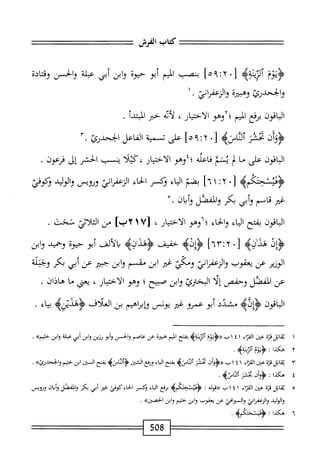 كتاب الفرش
﴿يَوْمُ ٱلزِّينَةِ﴾ [٥٩:٢٠] بنصب الميم أبو حيوة وابن أبي عبلة والحسن وقتادة
والجحدريّ وهبيرة والزعفرانيّ .١
الباقون برفع الميم ؛٢وهو الاختيار ، لأنّه خبر المبتدأ .
﴿وَأَن تَحْشُرَ ٱلنَّاسَ﴾ [٥٩:٢٠] على تسمية الفاعل الجحدريّ .٣
الباقون على ما لم يُسَمَّ فاعلُه ؛٤وهو الاختيار ، كَيْلَا ينسب الحشر إلى فرعون .
﴿فَيُسْحِتَكُم﴾ [٦١:٢٠] بضمّ الياء وكسر الحاء الزعفرانيّ ورويس والوليد وكوفيّ
غير قاسم وأبي بكر والمفضّل وأبان .٥
الباقون بفتح الياء والحاء ؛٦وهو الاختيار ، [٢١٧ب] من الثلاثيّ سَحَتَ .
﴿إِنْ هَذٰنِ﴾ [٦٣:٢٠] ﴿إِنْ﴾ خفيف ﴿هَذٰنِ﴾ بالألف أبو حيوة وحميد وابن
الوزير عن يعقوب والزعفرانيّ ومكّيّ غير ابن مقسم وابن جبير عن أبي بكر وجَبَلَة
عن المفضّل وحفص إلّا البختريّ وابن صبيح ؛ وهو الاختيار ، يعني ما هاذان .
الباقون ﴿إِنَّ﴾ مشدّد أبو عمرو غير يونس وإبراهيم بن العلّاف ﴿هَذَيْنِ﴾ بياء .
١ يقابل قرّة عين القرّاء ١٤١ب «﴿يَوْمَ ٱلزِّينَةِ﴾ بفتح الميم هبيرة عن عاصم والحسن وأبو رزين وابن أبي عبلة وابن خثيم» .
٢ هكذا : ﴿يَوْمُ ٱلزِّينَةِ﴾ .
٣ يقابل قرّة عين القرّاء ١٤١ب «﴿وَأَن تَحْشُرَ ٱلنَّاسَ﴾ بفتح الياء ورفع الشين ﴿ٱلنَّاسَ﴾ بفتح السين ابن خثيم والجحدريّ» .
٤ هكذا : ﴿وَأَن يُحْشَرَ ٱلنَّاسُ﴾ .
٥ يقابل قرّة عين القرّاء ١٤١ب «قوله : ﴿فَيُسْحِتَكُم﴾ برفع الياء وكسر الحاء كوفيّ غير أبي بكر والمفضّل وأبان ورويس
والوليد والزعفرانيّ عن يعقوب وابن خثيم وابن الحصين» .
٦ هكذا : ﴿فَيَسْحَتَكُم﴾ .
508